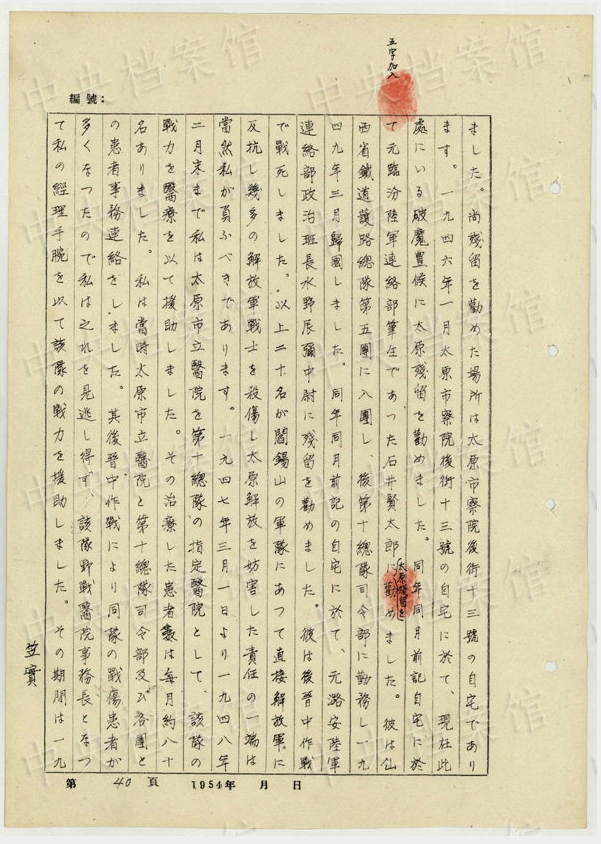 五字加入
編號:
ました。尚残留を勧めた場所は太原市察院後街十三號の自宅であり
ます。一九四六年一月太原市察院後街十三號の自宅に於て、現在此
處にいる破魔豊候に太原残留を勧めました。同年同月前記自宅に於
て元臨汾陸軍連絡部筆生であつた石井賢太郎に太原残留を勧めました。彼は山
西省鐵道護路總隊第五團に入團し、後第十總隊司令部に勤務し一九
四九年三月歸國しました。同年同月前記の自宅に於て、元潞安陸軍
連絡部政治班長水野辰彌中尉に残留を勧めました。彼は後晉中作戰
で戰死しました。以上二十名が閻錫山の軍隊にあつて直接解放軍に
反抗し幾多の解放軍戰士を殺傷し太原解放を妨害した責任の一端は
當然私が負ふべきであります。一九四七年三月一日より一九四八年
二月末まで私は太原市立醫院を第十總隊の指定醫院として、該隊の
戰力を醫療を以て援助しました。その治療した患者は每月約八十
名ありました。私は當時太原市立醫院と第十總隊司令部及び各團と
の患者事務連絡をしました。其後晉中作戰により同隊の戰傷患者が
多くなつたので私は之れを見逃し得ず、該隊野戰醫院事務長となつ
て私の經理手腕を以て該隊の戰力を援助しました。その期間は一九
笠實
第 40 頁 1954年 月 日
中央档案馆